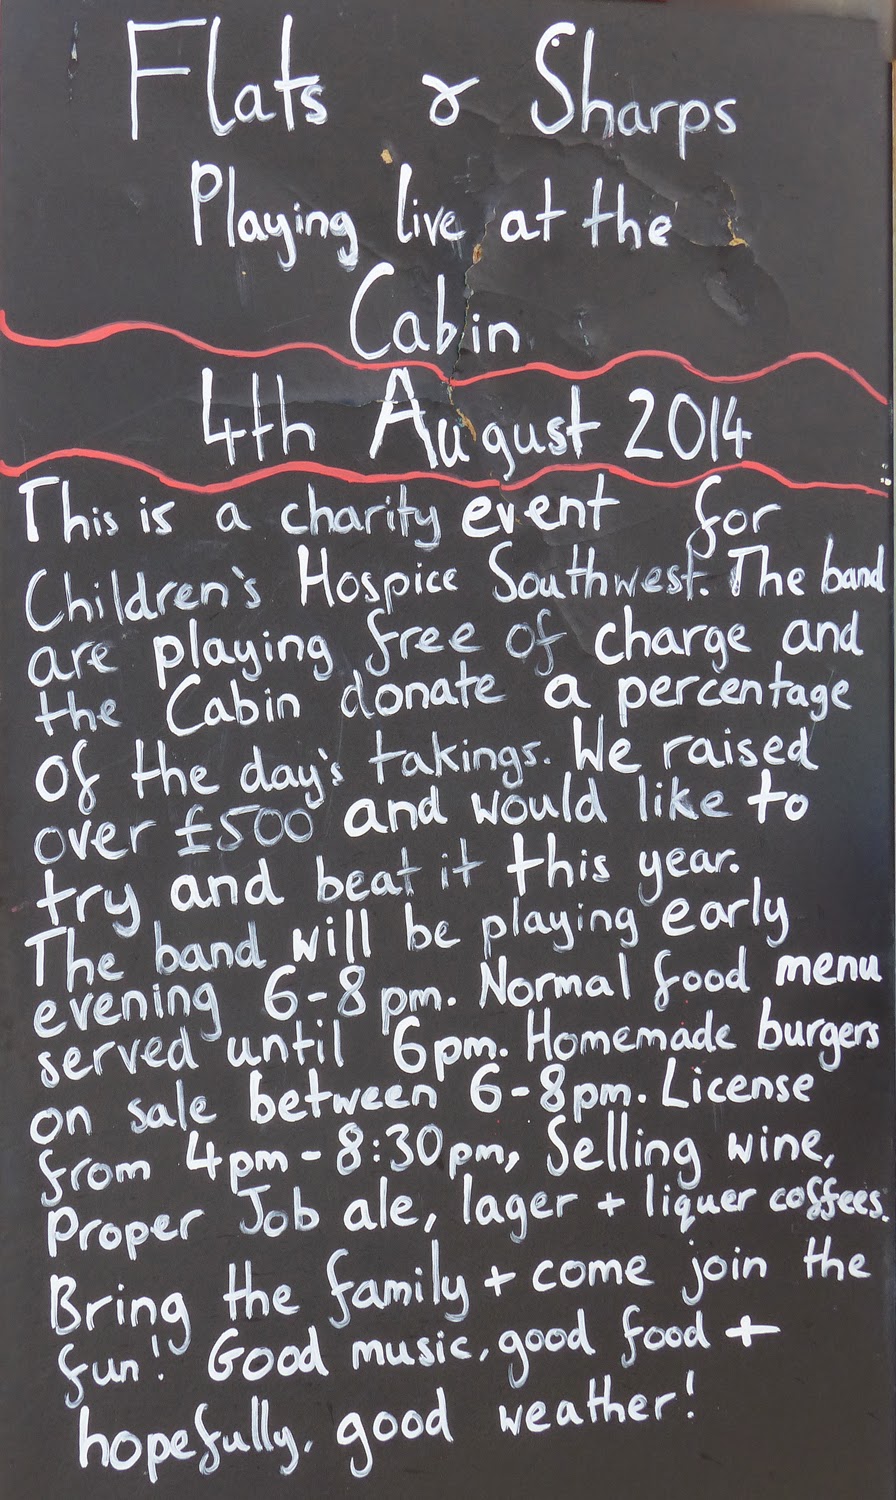 Flats & Sharps
Playing live at the
Cabin
4th August 2014
This is a charity event for
Children's Hospice Southwest. The band
are playing free of charge and
the Cabin donate a percentage
of the day's takings. We raised
over £500 and would like to
try and beat it this year.
The band will be playing early
evening 6-8pm. Normal food menu
served until 6pm. Homemade burgers
on sale between 6-8pm. License
from 4pm-8:30pm, Selling wine,
Proper Job ale, lager + liquer coffees.
Bring the family + come join the
fun! Good music, good food +
hopefully, good weather!